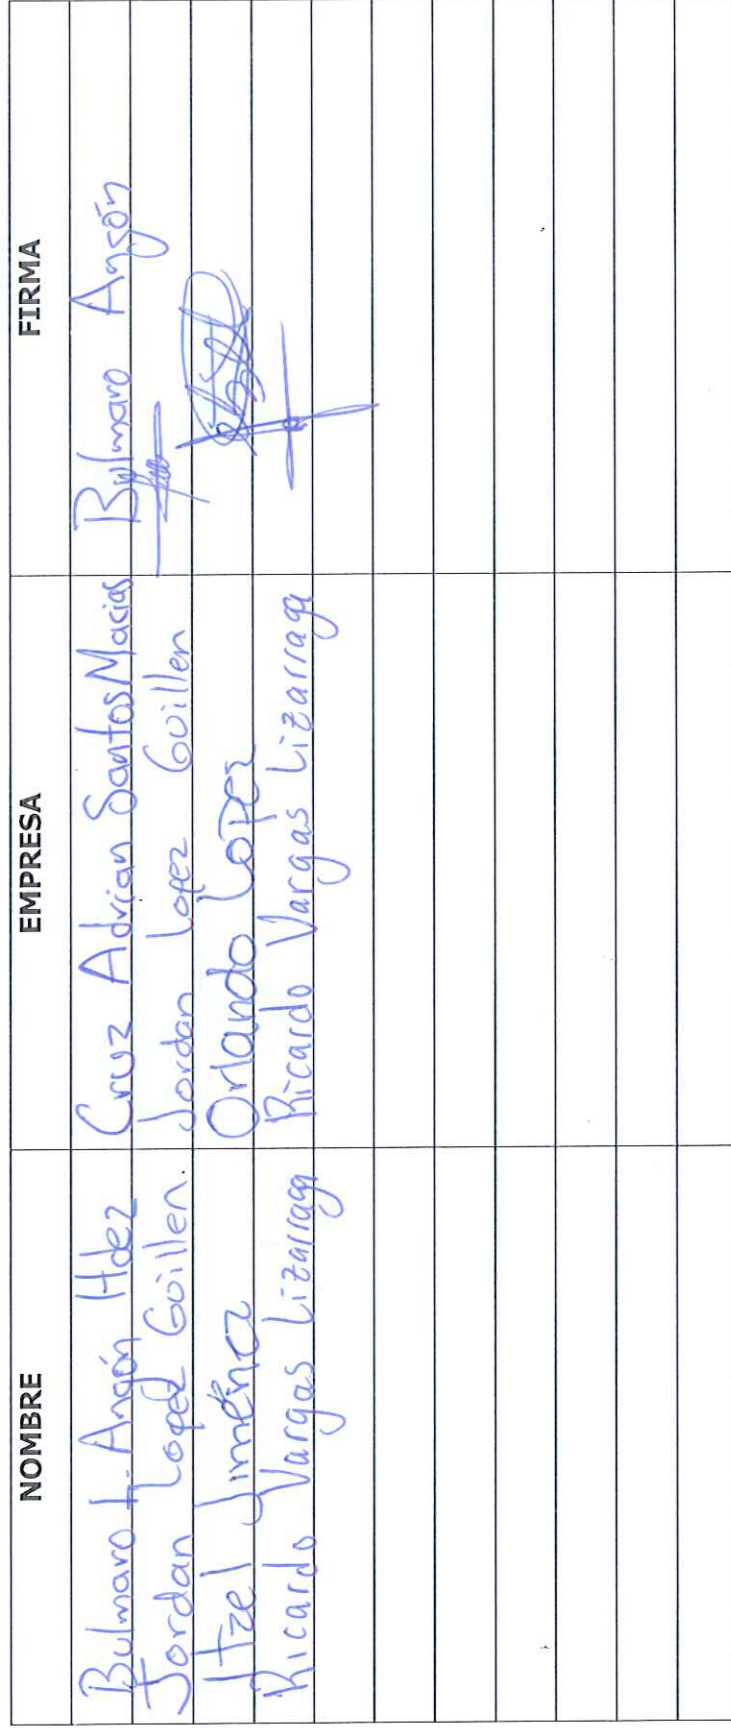 NOMBRE EMPRESA FIRMA
Bulmaro L. Angón Hdez Cruz Adrian Santos Macias Bulmaro Angón
Jordan Lopez Guillen. Jordan Lopez Guillen
Itzel Jiménez Orlando Lopez
Ricardo Vargas Lizarraga Ricardo Vargas Lizarraga